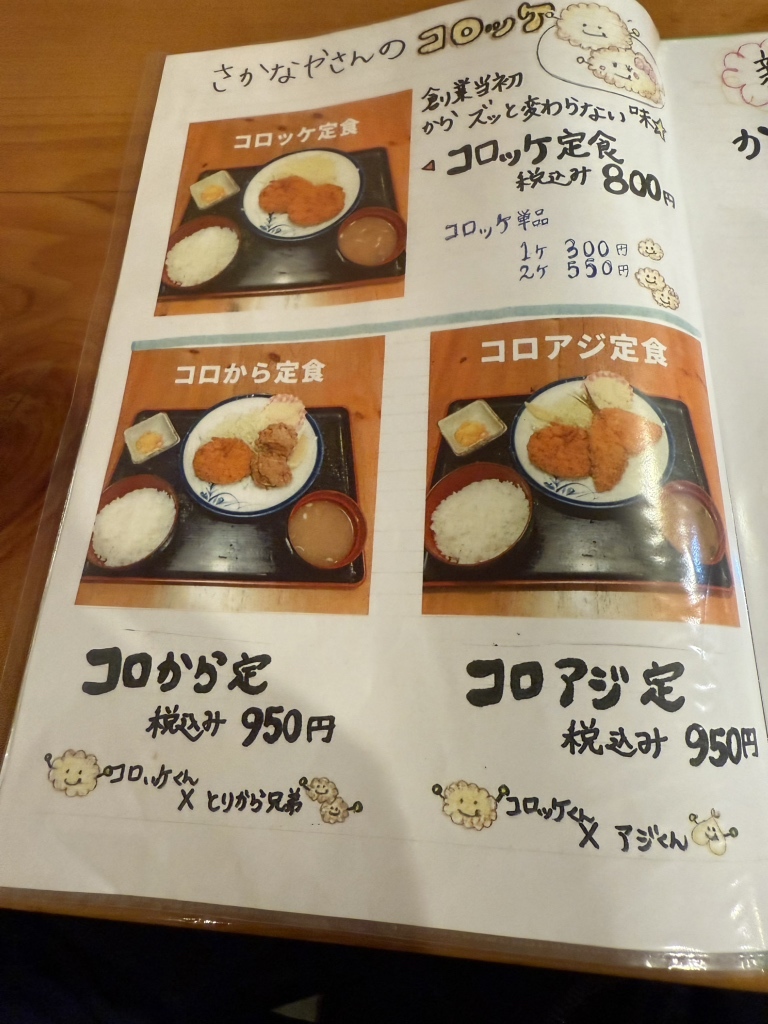 さかなやさんの コロッケ
創業当初
から ズッと変わらない味☆
コロッケ定食
コロッケ定食
税込み 800円
コロッケ単品
1ケ 300円
2ケ 550円
コロから定食
コロアジ定食
コロから定
税込み 950円
コロッケくん
× とりから兄弟
コロアジ定
税込み 950円
コロッケくん
× アジくん
か